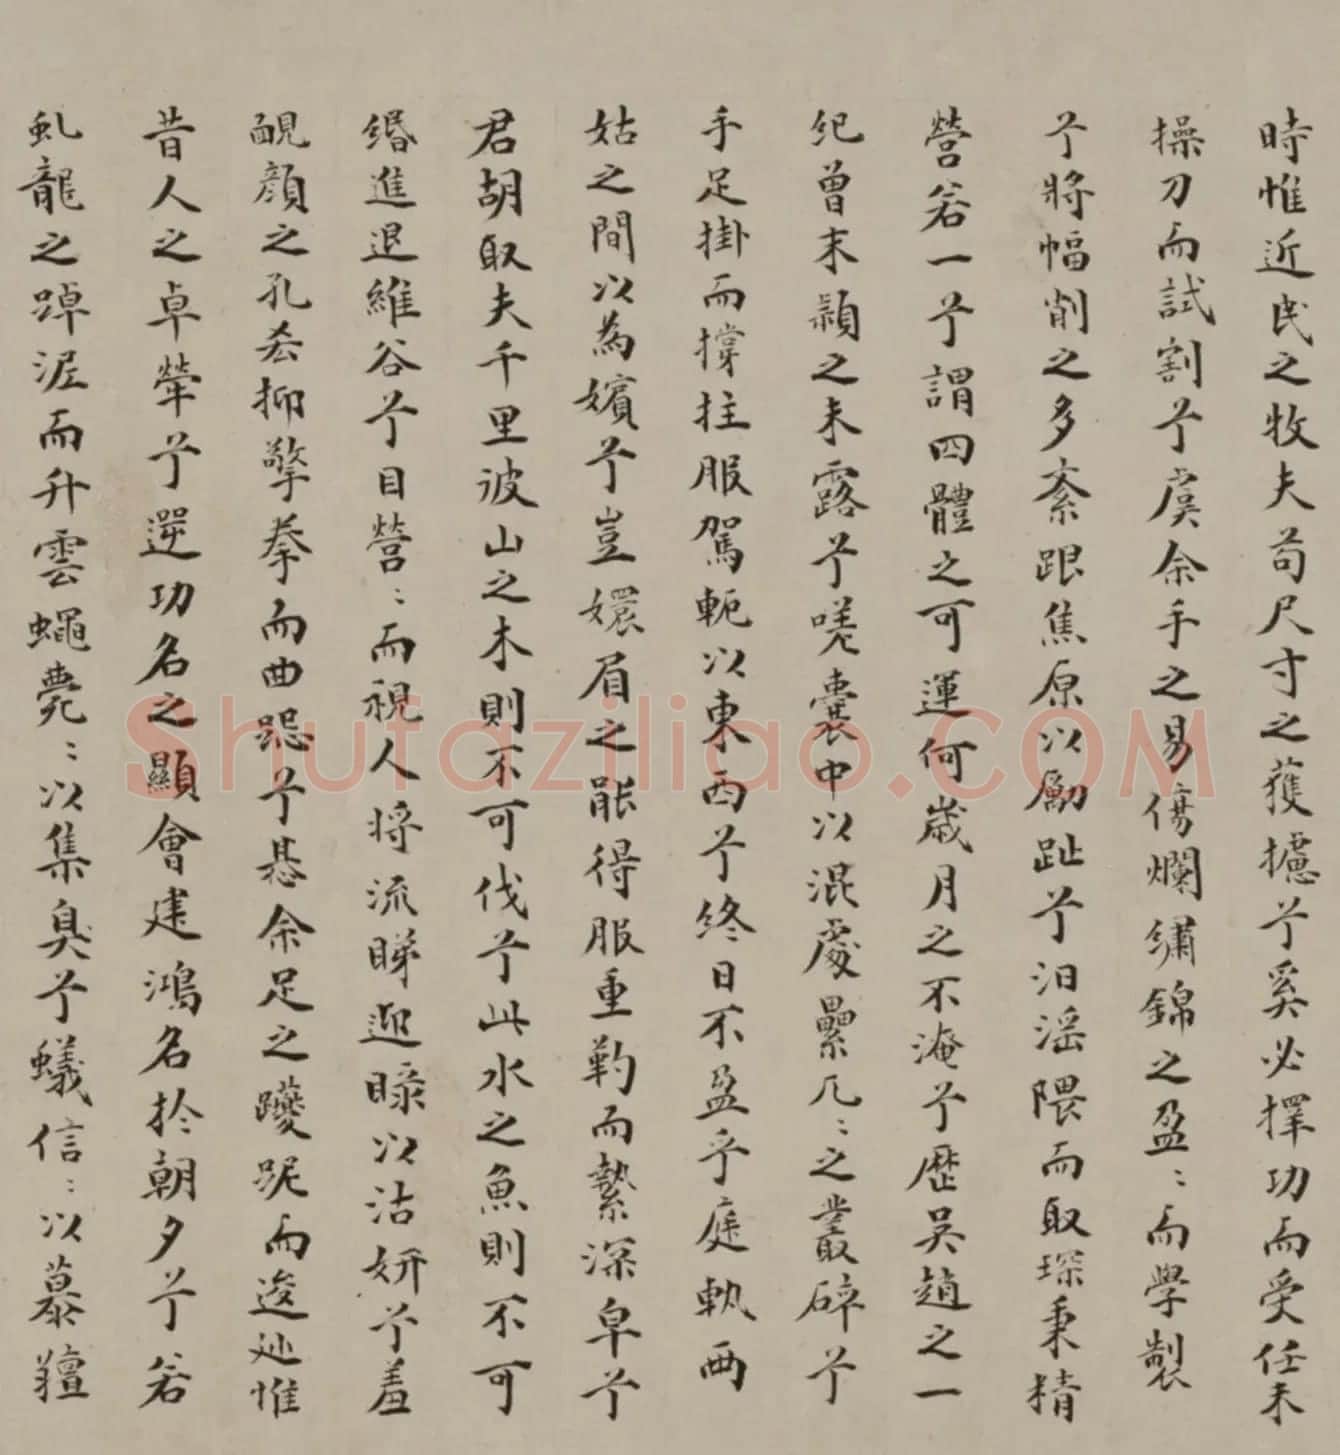 時惟近民之牧夫苟尺寸之獲攄兮奚必擇功而受任未
操刀而試割兮虞余手之易傷爛繡錦之盈〻而學製
兮將幅削之多紊跟焦原以勵趾兮汩滛隈而取琛秉精
營若一兮謂四體之可運何歲月之不淹兮歷吴趙之一
紀曾末穎之未露兮嘵嘵囊中以混處纍几〻之叢碎兮
手足掛而撐拄服駕軛以東西兮終日不盈乎庭執西
姑之間以為嬪兮豈嬛眉之能得服重靮而縶深皁兮
君胡取夫千里波山之木則不可伐兮此水之魚則不可
緡進退維谷兮目營〻而視人将流睇迎睩以沽妍兮羞
靦顔之孔厺抑擎拳而曲跽兮惎余足之躨跜而逡廵惟
昔人之卓犖兮逕功名之顯會建鴻名於朝夕兮若
虬龍之踔泥而升雲蠅薨〻以集臭兮蟻信〻以慕羶
Shufaziliao.COM